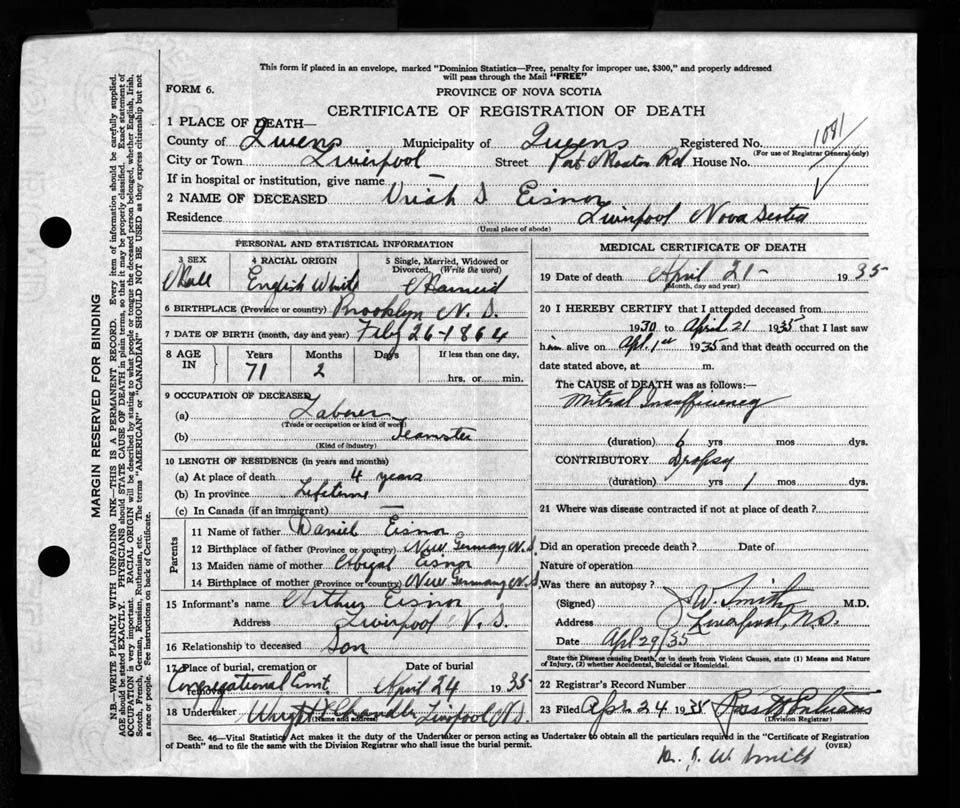 This form if placed in an envelope, marked "Dominion Statistics—Free, penalty for improper use, $300," and properly addressed
will pass through the Mail "FREE"
FORM 6.
PROVINCE OF NOVA SCOTIA
CERTIFICATE OF REGISTRATION OF DEATH
1 PLACE OF DEATH—
County of Queens Municipality of Queens Registered No. 1091
(For use of Registrar General only)
City or Town Liverpool Street Port Rd House No.
If in hospital or institution, give name —
2 NAME OF DECEASED Uriah S Eisnor
Residence Liverpool Nova Scotia
(Usual place of abode)
PERSONAL AND STATISTICAL INFORMATION
3 SEX 4 RACIAL ORIGIN 5 Single, Married, Widowed or Divorced, (Write the word)
Male English White Married
6 BIRTHPLACE (Province or country) Brooklyn N. S.
7 DATE OF BIRTH (month, day and year) Feby 26-1864
8 AGE IN Years Months Days If less than one day,
71 2 hrs. or min.
9 OCCUPATION OF DECEASED
(a) Laborer
(Trade or occupation or kind of work)
(b) Teamster
(Kind of industry)
10 LENGTH OF RESIDENCE (in years and months)
(a) At place of death 4 years
(b) In province Lifetime
(c) In Canada (if an immigrant) —
Parents
11 Name of father Daniel Eisnor
12 Birthplace of father (Province or country) New Germany N.S.
13 Maiden name of mother Abigal Eisnor
14 Birthplace of mother (Province or country) New Germany N.S.
15 Informant's name Arthur Eisnor
Address Liverpool N. S.
16 Relationship to deceased Son
17 Place of burial, cremation or removal Date of burial
Congregational Cemt. April 24 1935
18 Undertaker Wright Chandler Liverpool N.S.
(Name and address)
MEDICAL CERTIFICATE OF DEATH
19 Date of death April 21- 1935
(Month, day and year)
20 I HEREBY CERTIFY that I attended deceased from
1930 to April 21 1935 that I last saw
him alive on Apl. 1st 1935 and that death occurred on the
date stated above, at m.
The CAUSE of DEATH was as follows:—
Mitral Insufficiency
(duration) 6 yrs. mos. dys.
CONTRIBUTORY Dropsy
(duration) yrs. 1 mos. dys.
21 Where was disease contracted if not at place of death?
Did an operation precede death? Date of
Nature of operation
Was there an autopsy?
(Signed) J W Smith M.D.
Address Liverpool, N.S.
Date Apl 29/35
State the Disease causing Death, or in death from Violent Causes, state (1) Means and Nature
of Injury, (2) whether Accidental, Suicidal or Homicidal.
22 Registrar's Record Number
23 Filed Apr. 24 1935
(Division Registrar)
Sec. 46—Vital Statistics Act makes it the duty of the Undertaker or person acting as Undertaker to obtain all the particulars required in the "Certificate of Registration
of Death" and to file the same with the Division Registrar who shall issue the burial permit.
(OVER)
Dr. J. W. Smith
MARGIN RESERVED FOR BINDING
N.B.—WRITE PLAINLY WITH UNFADING INK—THIS IS A PERMANENT RECORD. Every item of information should be carefully supplied.
AGE should be stated EXACTLY. PHYSICIANS should STATE CAUSE OF DEATH in plain terms, so that it may be properly classified. Exact statement of
OCCUPATION is very important. RACIAL ORIGIN will be described by stating to what people or tongue the deceased person belonged, whether English, Irish,
Scotch, French, German, Russian, Ruthenian, etc. The terms "AMERICAN" or "CANADIAN" SHOULD NOT BE USED as they express citizenship but not
a race or people. See instructions on back of Certificate.